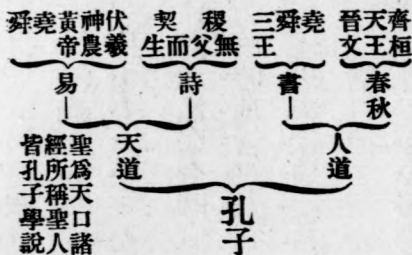 齊桓
天王
晉文
堯
舜
三王
稷契
無父而生
伏羲
神農
黃帝
堯
舜
春秋
書
詩
易
人道
天道
孔子
聖爲天口諸
經所稱聖人
皆孔子學說